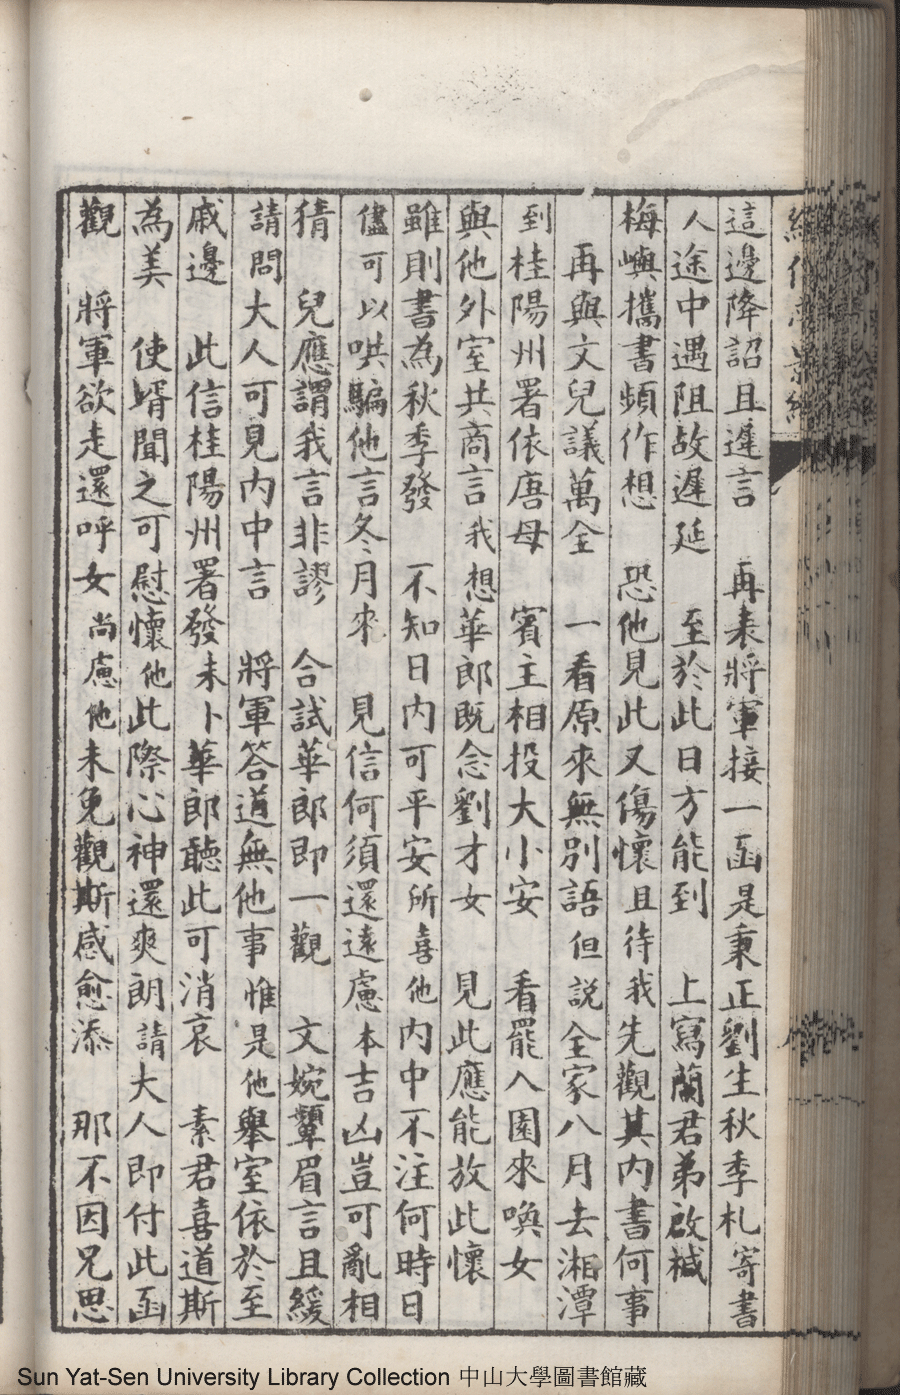 這邊降詔且遲言　再表將軍接一函是秉正劉生秋季札寄書
人途中遇阻故遲延　至於此日方能到　上寫蘭君弟啟椷
梅嶼攜書頻作想　恐他見此又傷懷且待我先觀其內書何事
再與文兒議萬全　一看原來無別語但說全家八月去湘潭
到桂陽州署依唐母　賓主相投大小安　看罷入園來喚女
與他外室共商言我想華郎既念劉才女　見此應能放此懷
雖則書為秋季發　不知日內可平安所喜他內中不注何時日
儘可以哄騙他言冬月來　見信何須還遠慮本吉凶豈可亂相
猜　兒應謂我言非謬　合試華郎即一觀　文婉顰眉言且緩
請問大人可見內中言　將軍答道無他事惟是他舉室依於至
戚邊　此信桂陽州署發未卜華郎聽此可消哀　素君喜道斯
為美　使壻聞之可慰懷他此際心神還爽朗請大人即付此函
觀　將軍欲走還呼女尚慮他未免觀斯感愈添　那不因兄思
Sun Yat-Sen University Library Collection 中山大學圖書館藏